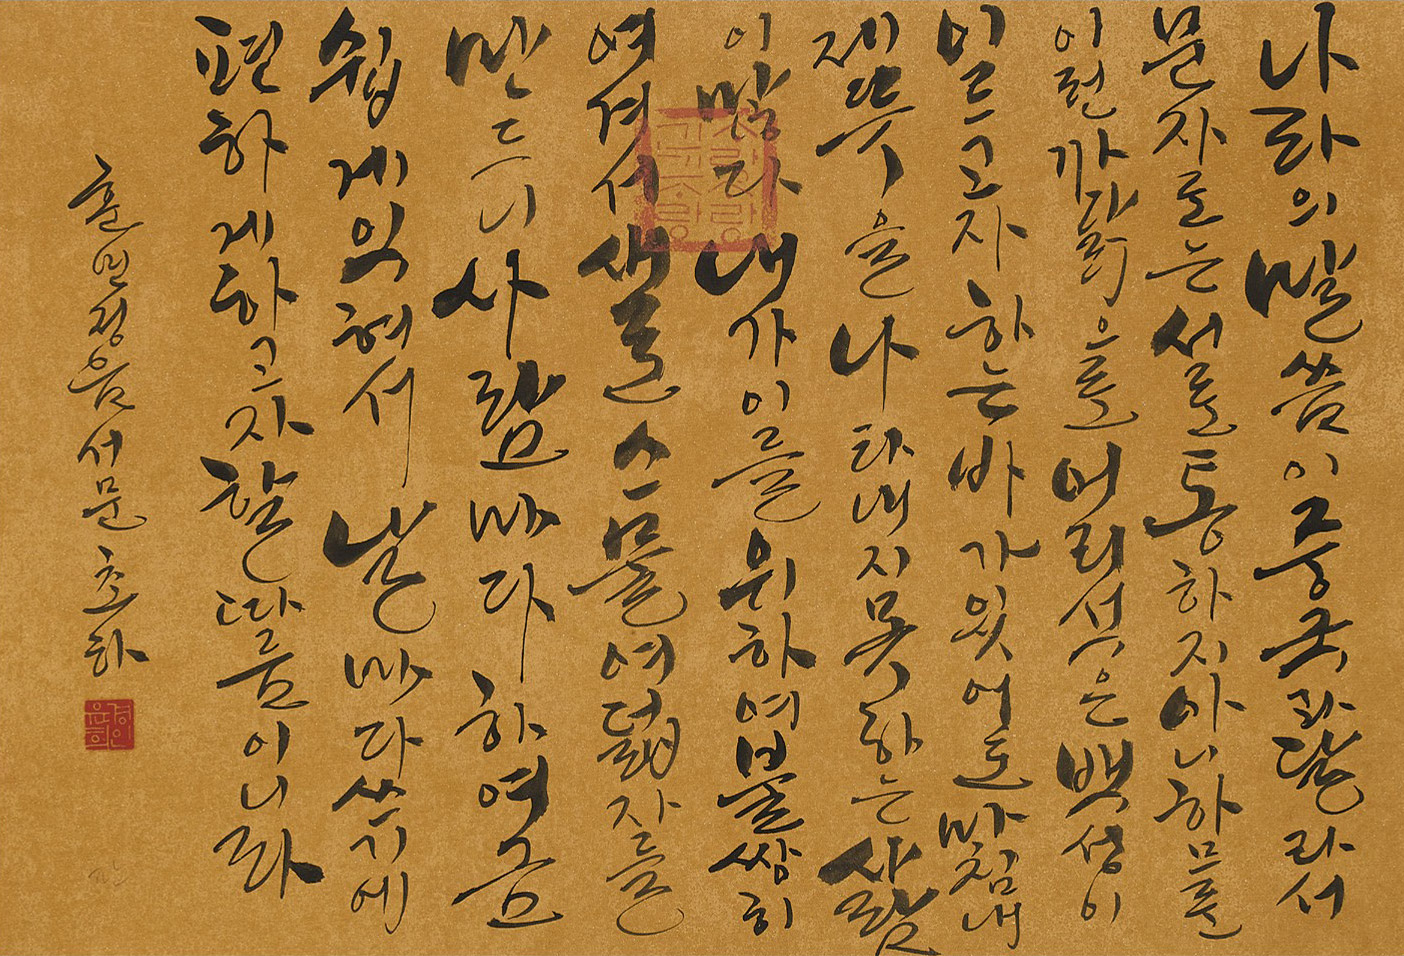 나라의 말씀이 중국과 달라서
문자로는 서로 통하지 아니하므로
이런 까닭으로 어리석은 백성이
이르고자 하는 바가 있어도 마침내
제 뜻을 나타내지 못하는 사람
이 많다 내가 이를 위하여 불쌍히
여겨서 새로 스물여덟 자를
만드니 사람마다 하여금
쉽게 익혀서 날마다 쓰기에
편하게 하고자 할 따름이니라
훈민정음 서문